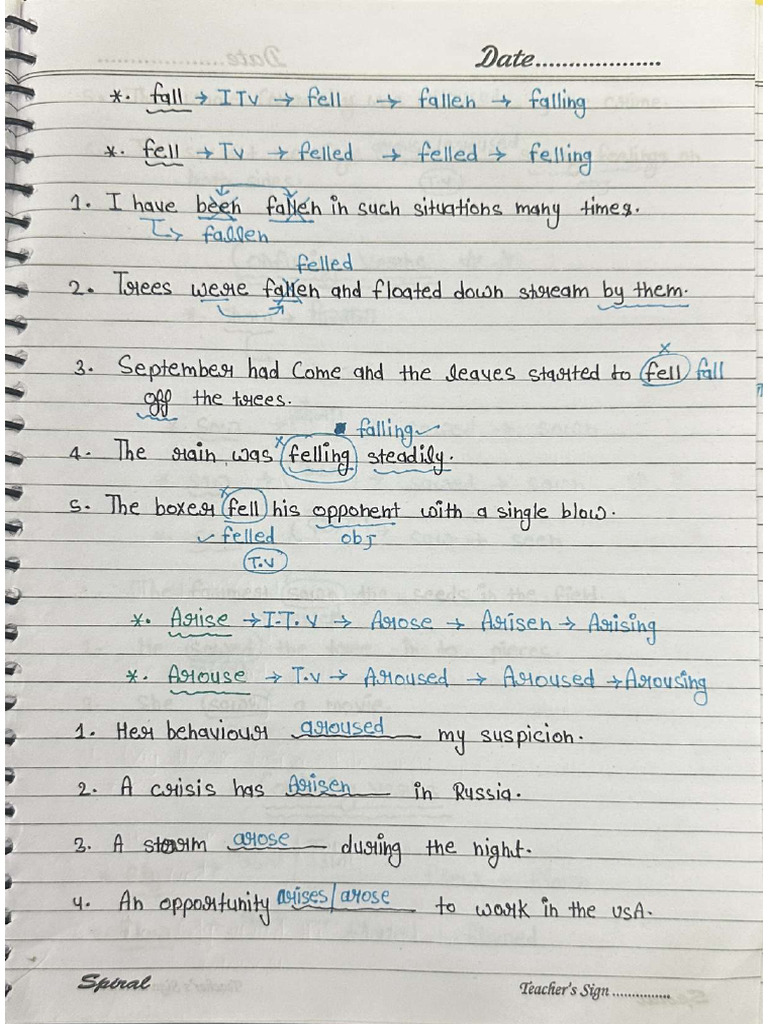 Date...................
*. fall → ITV → fell → fallen → falling
*. fell → TV → felled → felled → felling
1. I have been fallen in such situations many times.
fallen
felled
2. Trees were fallen and floated down stream by them.
3. September had Come and the leaves started to fell fall
off the trees.
falling
4. The rain was felling steadily.
5. The boxer fell his opponent with a single blow.
felled obj
T.V
*. Arise → I.T.V → Arose → Arisen → Arising
*. Arouse → T.V → Aroused → Aroused → Arousing
1. Her behaviour aroused my suspicion.
2. A crisis has Arisen in Russia.
3. A storm arose during the night.
4. An opportunity arises/arose to work in the USA.
Spiral Teacher's Sign...............